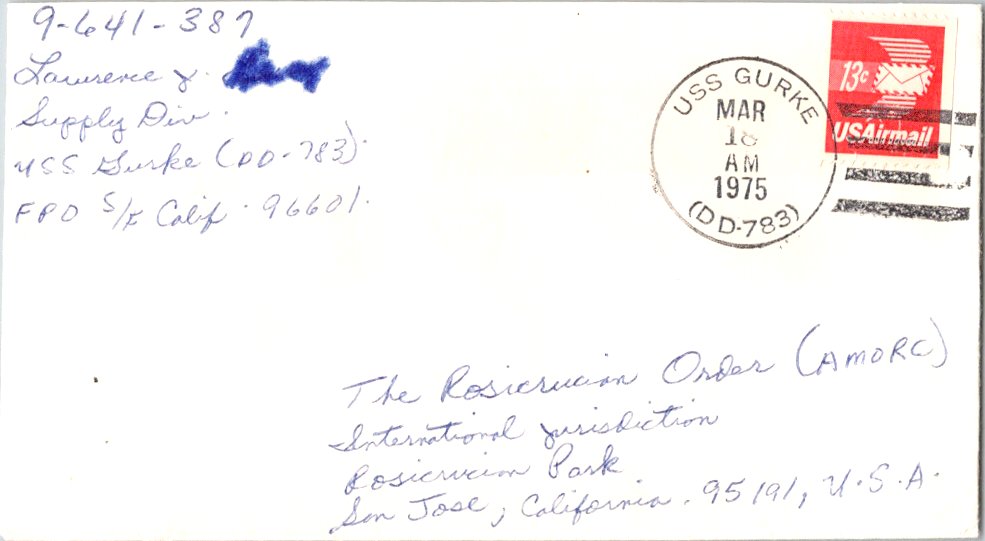 9-641-387
Lawrence J.
Supply Div.
USS Gurke (DD-783)
FPO S/F Calif. 96601.
USS GURKE
MAR
18
AM
1975
(DD-783)
13c
USAirmail
The Rosicrucian Order (AMORC)
International Jurisdiction
Rosicrucian Park
San Jose, California. 95191, U.S.A.